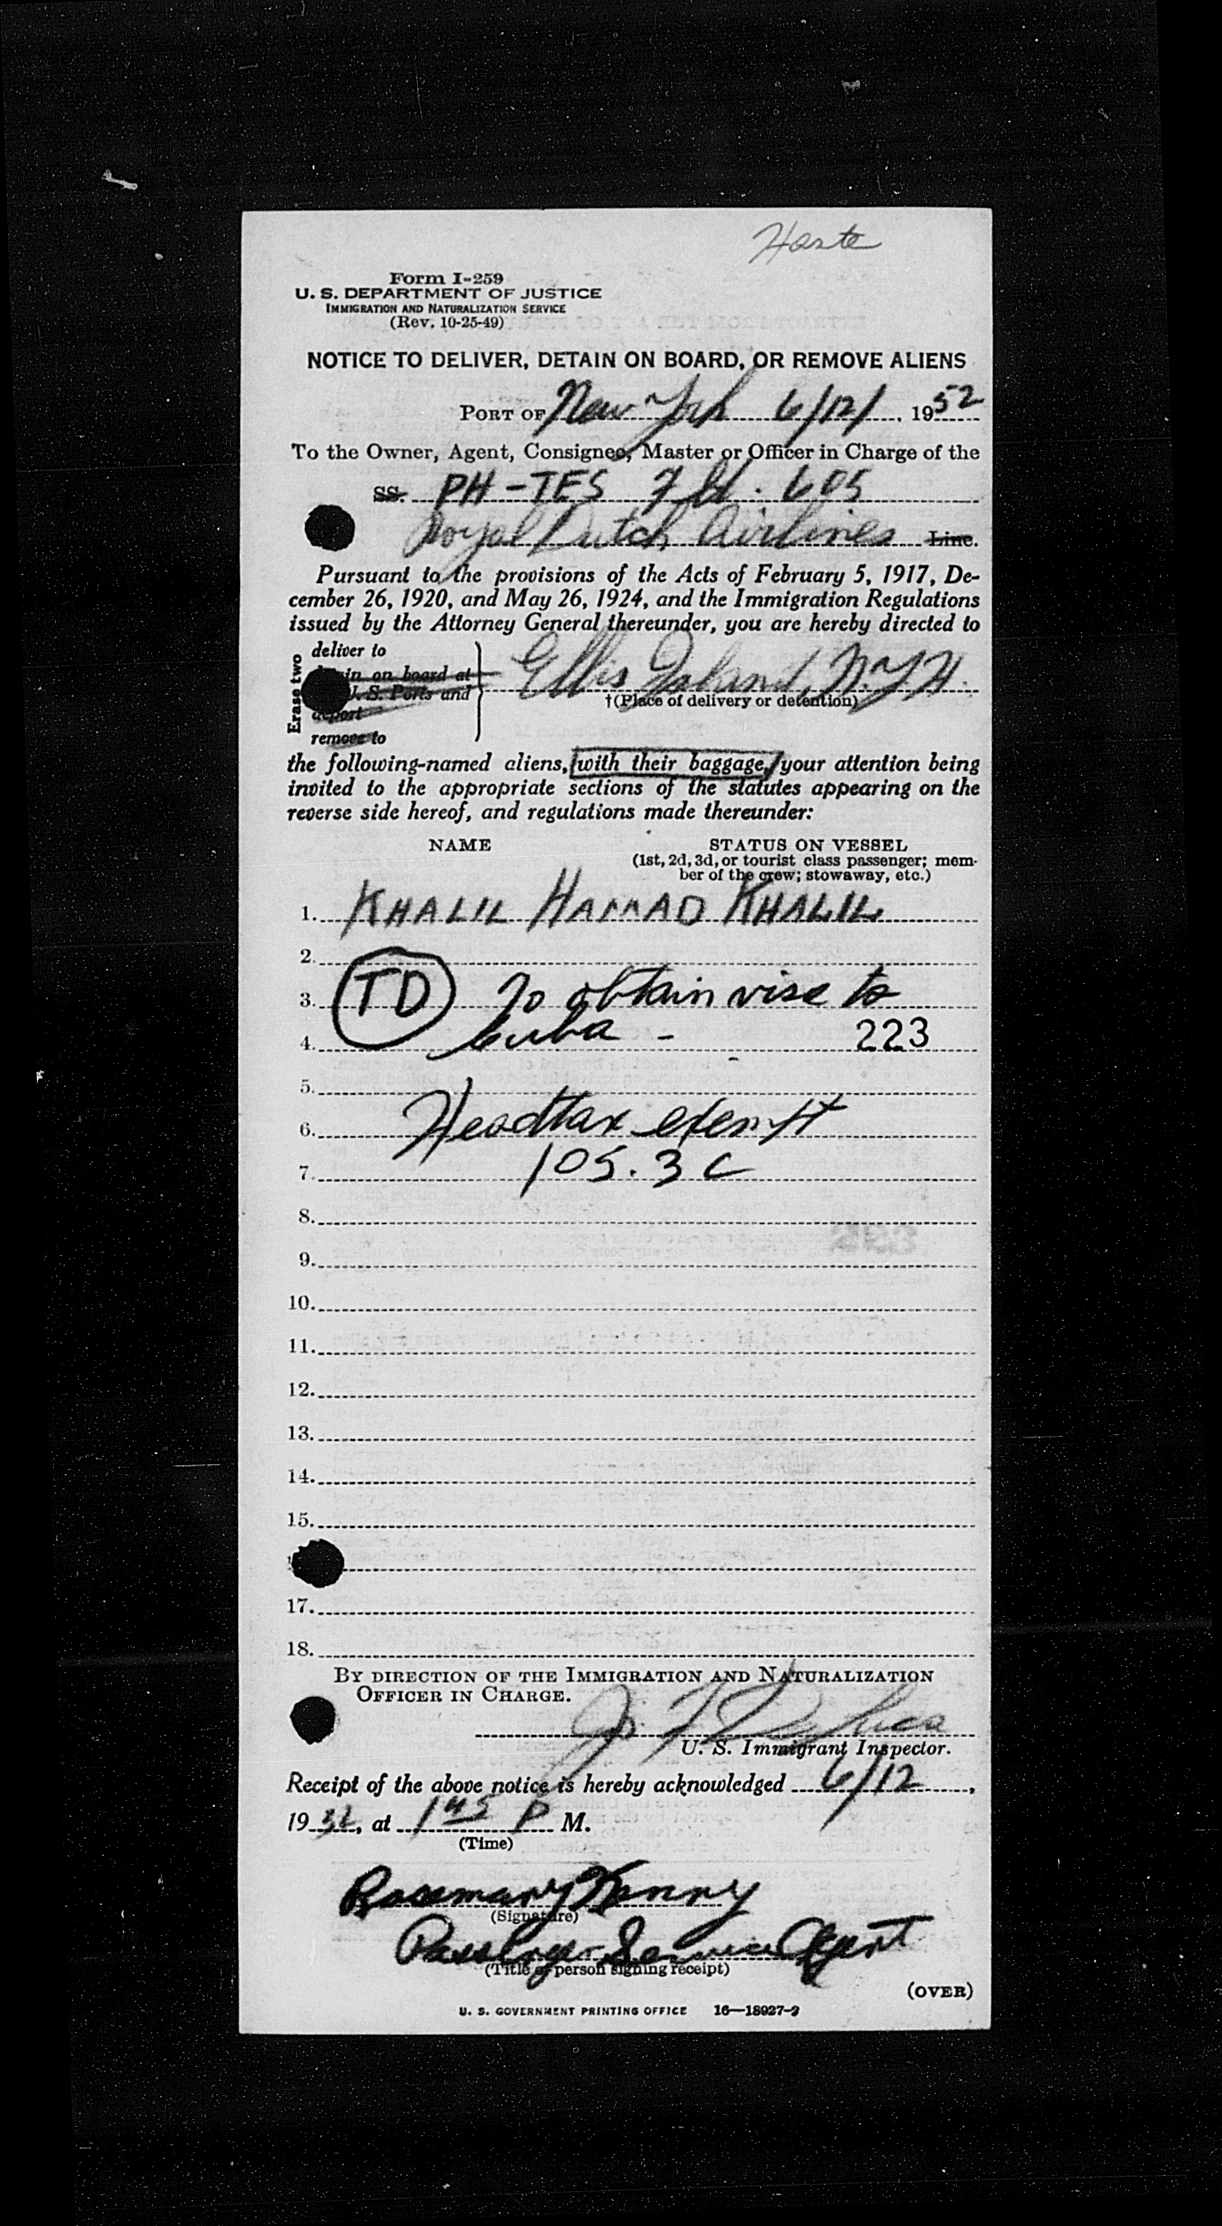 Haste
Form I-259
U. S. DEPARTMENT OF JUSTICE
IMMIGRATION AND NATURALIZATION SERVICE
(Rev. 10-25-49)
NOTICE TO DELIVER, DETAIN ON BOARD, OR REMOVE ALIENS
PORT OF New York 6/12/, 1952
To the Owner, Agent, Consignee, Master or Officer in Charge of the
SS. PH-TES Flt. 605
Royal Dutch Airlines Line.
Pursuant to the provisions of the Acts of February 5, 1917, De-
cember 26, 1920, and May 26, 1924, and the Immigration Regulations
issued by the Attorney General thereunder, you are hereby directed to
Erase two
deliver to
on board at
U. S. Ports and
deport
remove to
Ellis Island, N.Y.H.
†(Place of delivery or detention)
the following-named aliens, with their baggage, your attention being
invited to the appropriate sections of the statutes appearing on the
reverse side hereof, and regulations made thereunder:
NAME STATUS ON VESSEL
(1st, 2d, 3d, or tourist class passenger; mem-
ber of the crew; stowaway, etc.)
1. KHALIL HAMMAD KHALIL
2.
3. TD To obtain vise to
4. Cuba - 223
5.
6. Headtax exempt
7. 105.3 C
8.
9.
10.
11.
12.
13.
14.
15.
17.
18.
BY DIRECTION OF THE IMMIGRATION AND NATURALIZATION
OFFICER IN CHARGE.
U. S. Immigrant Inspector.
Receipt of the above notice is hereby acknowledged 6/12,
1952, at 1 45 P M.
(Time)
Rosemary Kenny
(Signature)
Passenger Service Agent
(Title of person signing receipt)
(OVER)
U. S. GOVERNMENT PRINTING OFFICE 16—18927-2